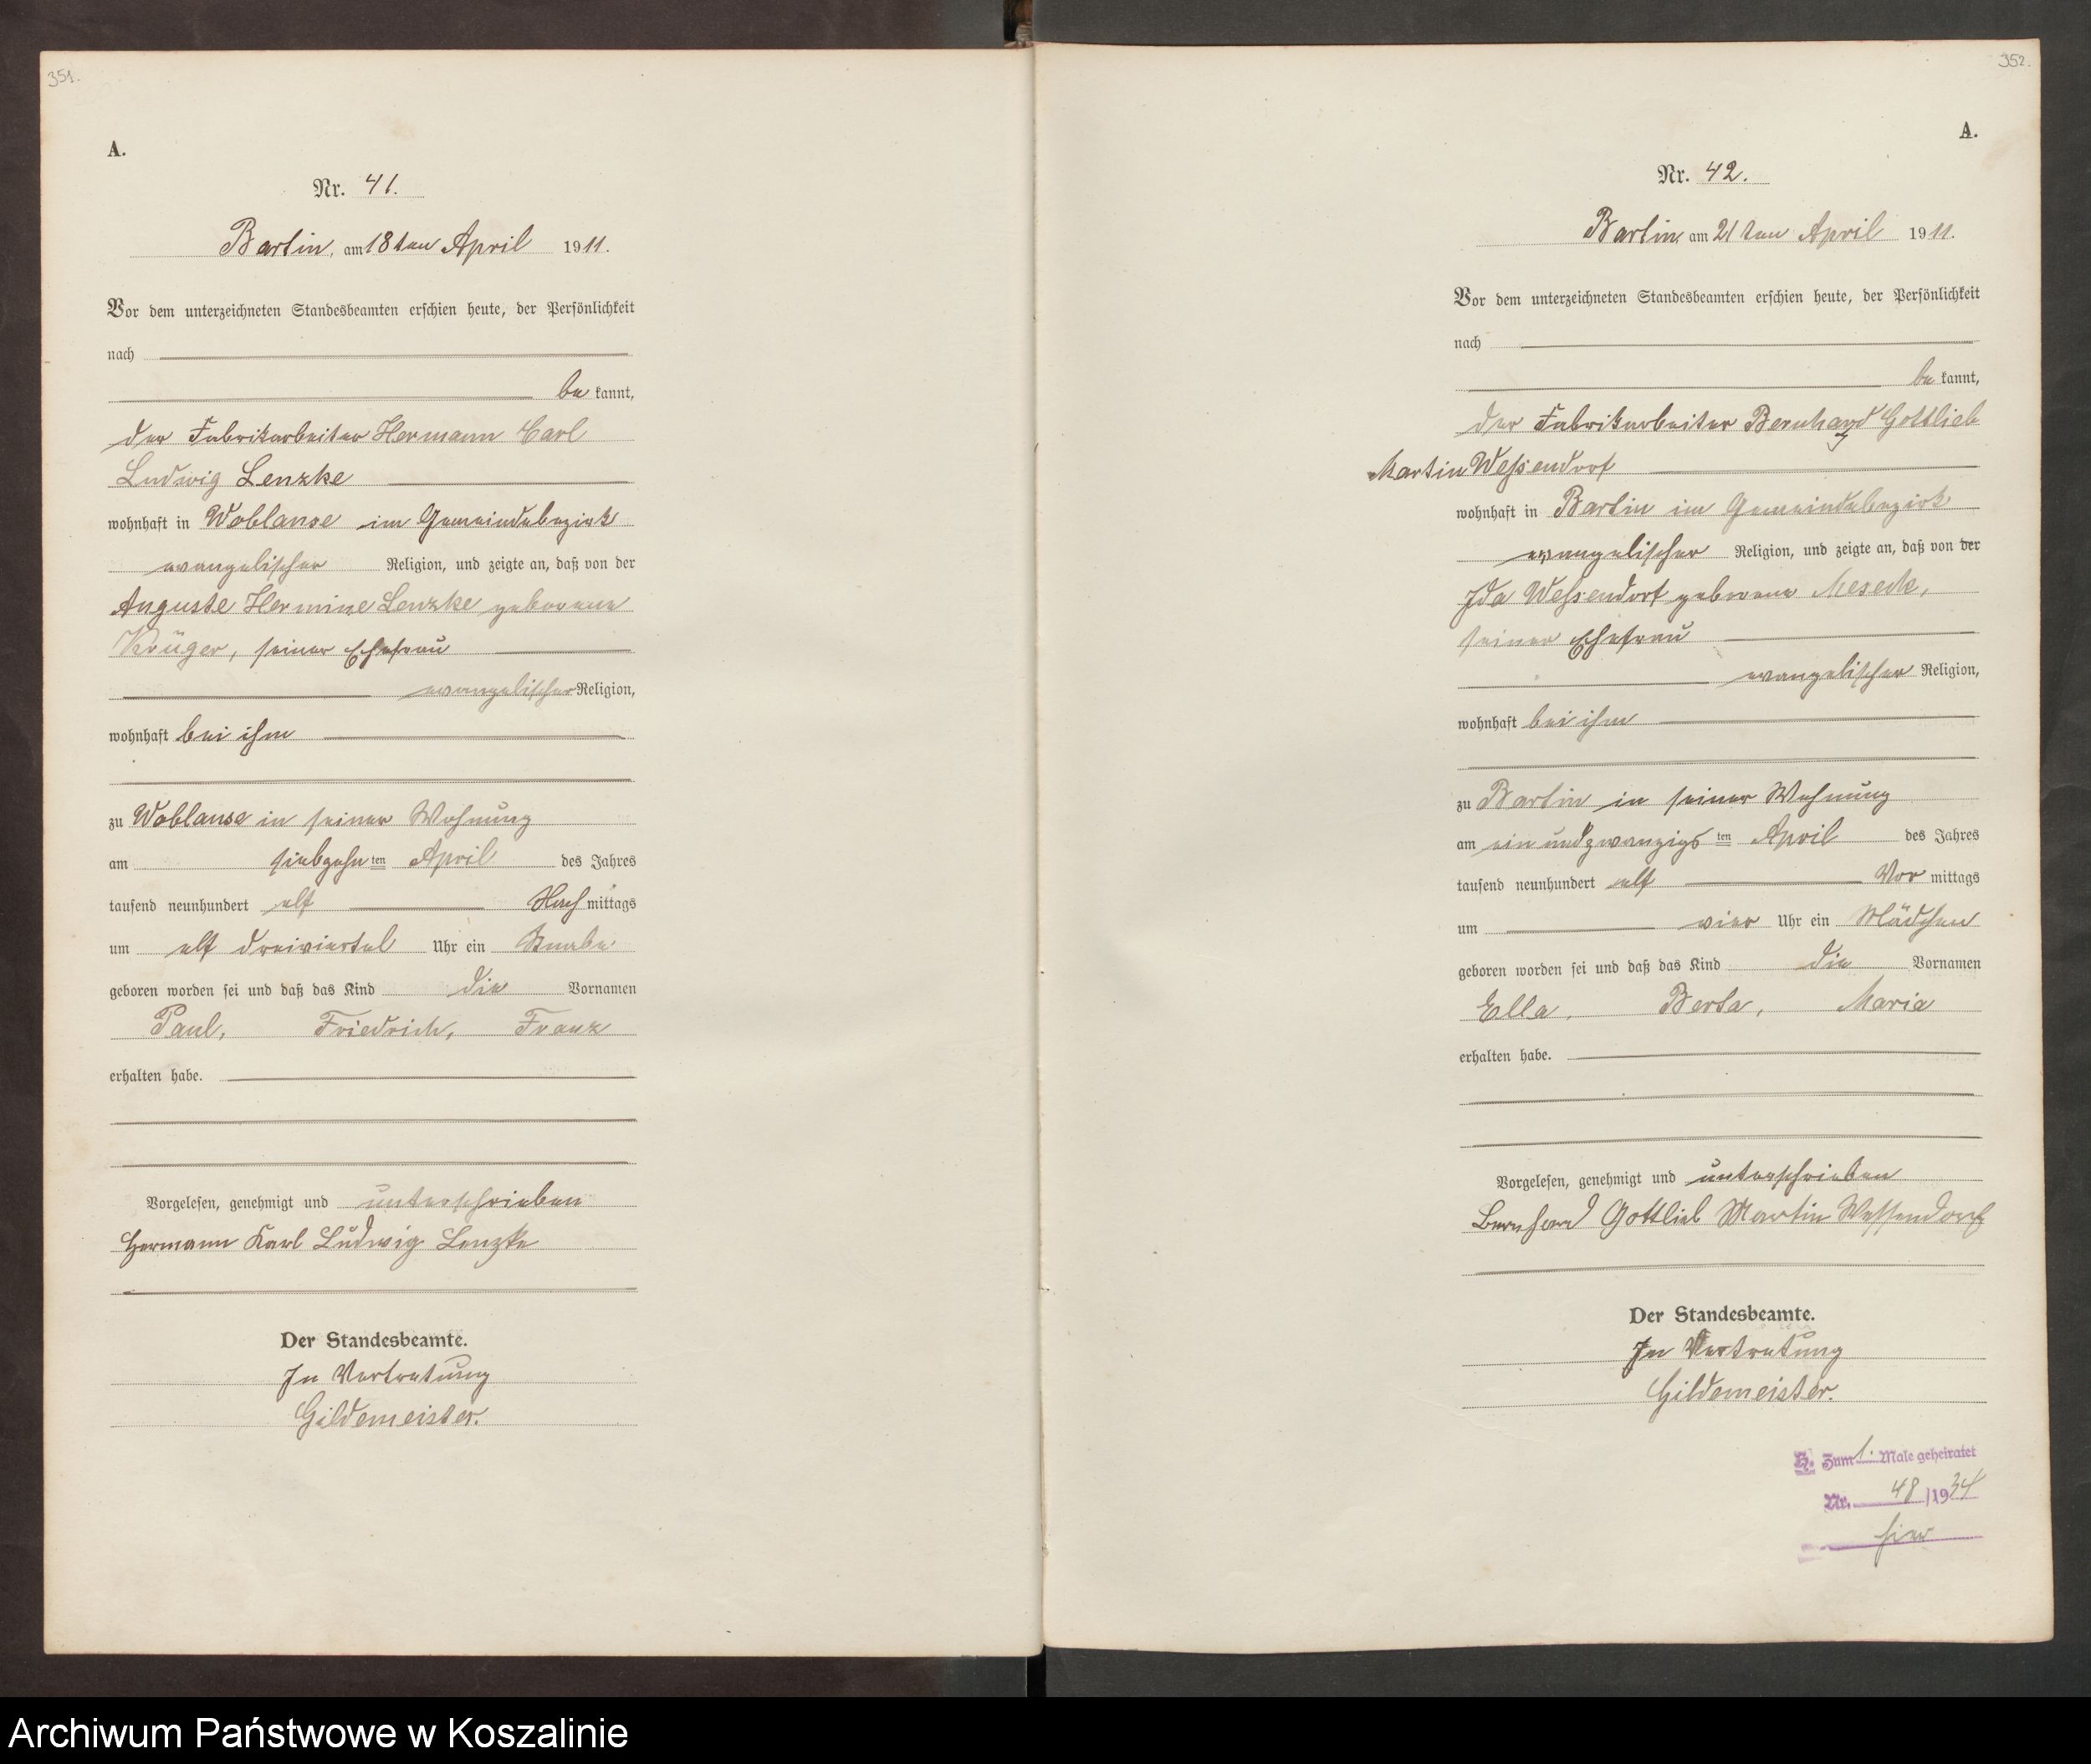 351.
A.
Nr. 41.
Bartin, am 18ten April 1911.
Vor dem unterzeichneten Standesbeamten erschien heute, der Persönlichkeit
nach
be kannt,
der Fabrikarbeiter Hermann Carl
Ludwig Lenzke
wohnhaft in Woblanse im Gemeindebezirk
evangelischer Religion, und zeigte an, daß von der
Auguste Hermine Lenzke geborene
Krüger, seiner Ehefrau
evangelischer Religion,
wohnhaft bei ihm
zu Woblanse in seiner Wohnung
am siebzehnten April des Jahres
tausend neunhundert elf Nach mittags
um elf dreiviertel Uhr ein Knabe
geboren worden sei und daß das Kind die Vornamen
Paul, Friedrich, Franz
erhalten habe.
Vorgelesen, genehmigt und unterschrieben
Hermann Karl Ludwig Lenzke
Der Standesbeamte.
In Vertretung
Gildemeister.
352.
A.
Nr. 42.
Bartin, am 21ten April 1911.
Vor dem unterzeichneten Standesbeamten erschien heute, der Persönlichkeit
nach
be kannt,
der Fabrikarbeiter Bernhard Gottlieb
Martin Wessendorf
wohnhaft in Bartin im Gemeindebezirk
evangelischer Religion, und zeigte an, daß von der
Ida Wessendorf geborene Meseck,
seiner Ehefrau
evangelischer Religion,
wohnhaft bei ihm
zu Bartin in seiner Wohnung
am einundzwanzigsten April des Jahres
tausend neunhundert elf Vor mittags
um vier Uhr ein Mädchen
geboren worden sei und daß das Kind die Vornamen
Ella, Berta, Maria
erhalten habe.
Vorgelesen, genehmigt und unterschrieben
Bernhard Gottlieb Martin Wessendorf
Der Standesbeamte.
In Vertretung
Gildemeister.
H. Zum 1. Male geheiratet
Nr. 48/1934
hier
Archiwum Państwowe w Koszalinie